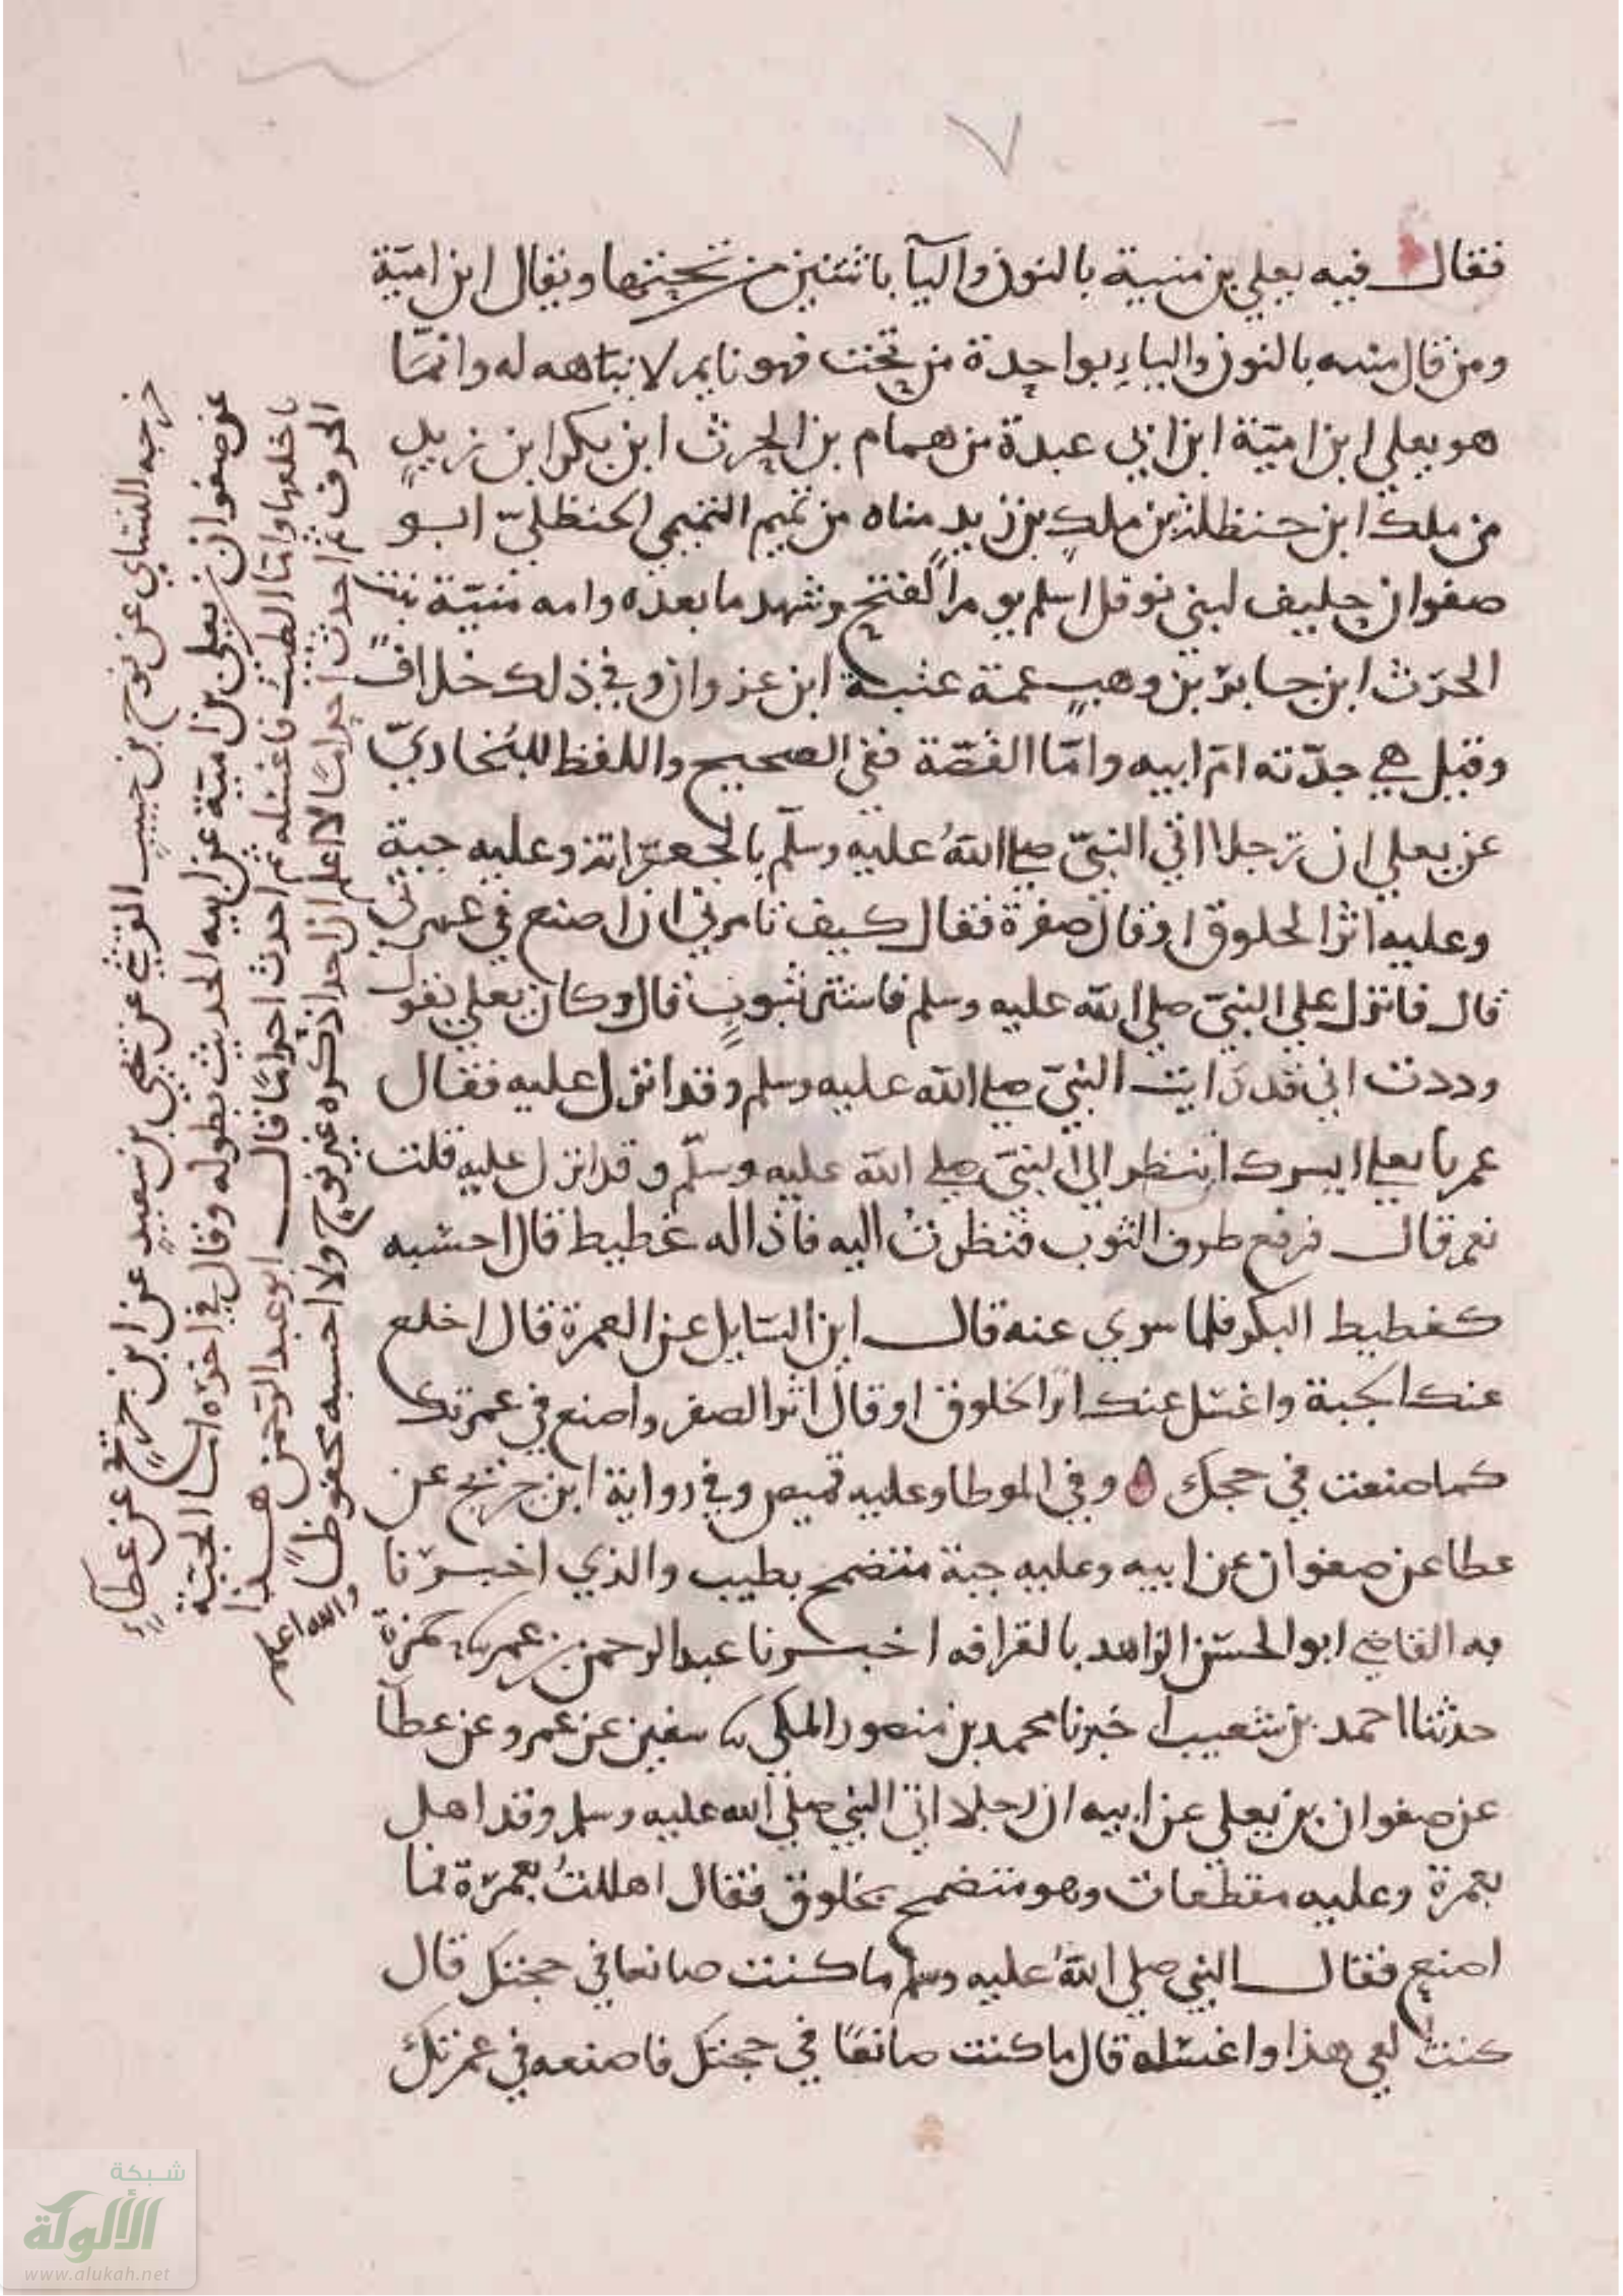 ٧
فقال فيه يعلي بن منية بالنون واليآ باثنتين من تحتها ويقال ابن اميّة
ومن قال منبه بالنون والباءِ بواحدة من تحت فهو نايم لا نباهه له وانمّا
هو يعلي ابن اميّة ابن ابي عبدة بن همام بن الحرث ابن بكر ابن زيدٍ
بن ملك ابن حنظلة بن ملكٍ بن زيد مناه بن تميم التميمي الحنظليّ ابو
صفوان حليف لبني نوفل اسلم يوم الفتح وشهد ما بعده وامه منيّة بنت
الحرث ابن جابر بن وهبٍ عمة عتبة ابن غزوان وفي ذلك خلافٌ
وقيل هي جدّته امّ ابيه وامّا القصّة ففي الصحيح واللفظ للبخاريّ
عن يعلي ان رجلا اتي النبيّ صلى اللهُ عليه وسلّم بالجعرّانة وعليه جبة
وعليه اثر الخلوق او قال صفرة فقال كيف تامرني ان اصنع في عمرتي
قال فانزل علي النبيّ صلي الله عليه وسلم فاستتر بثوبٍ قال وكان يعلي يقول
وددت اني قد رايت النبيّ صلى الله عليه وسلم وقد انزل عليه فقال
عمر يا يعلي ايسرك ان تنظر الي النبيّ صلى الله عليه وسلّم وقد انزل عليه قلت
نعم قال فرفع طرف الثوب فنظرتُ اليه فاذا له غطيط قال احسبه
كغطيط البكر فلما سري عنه قال اين السّايل عن العمرة قال اخلع
عنك الجبة واغسل عنك اثر الخلوق او قال اثر الصفر واصنع في عمرتك
كما صنعت في حجك ه وفي الموطا وعليه قميص وفي رواية ابن جريج عن
عطا عن صفوان عن ابيه وعليه جبة متضمخ بطيب والذي اخبرنا
به القاضي ابو الحسن الزاهد بالقرافه اخبرنا عبد الرحمن بن عمر ثنا حمزة
حدثنا احمد بن شعيب اخبرنا محمد بن منصور المكي ثنا سفين عن عمرو عن عطا
عن صفوان بن يعلي عن ابيه ان رجلا اتي النبي صلي الله عليه وسلم وقد اهل
بعمرة وعليه مقطعات وهو متضمخ بخلوق فقال اهللتُ بعمرة فما
اصنع فقال النبي صلي اللهُ عليه وسلم ما كنت صانعا في حجتك قال
كنت هذا واغسله قال ما كنت صانعًا في حجتك فاصنعه في عمرتك
خرجه النساي عن نوح بن حبيب القومسي عن يحيي بن سعيدٍ عن ابن جريج عن عطاءٍ
عن صفوان بن يعلي بن اميّة عن ابيه الحديث بطوله وقال في اخره اما الجبّة
فاخلعها وامّا الطيب فاغسله ثم احدث احرامًا قال ابو عبد الرحمن هذا
الحرف ثم احدث احرامًا لا اعلم ان احدا ذكره غير نوح ولا احسبه محفوظًا
والله اعلم
شبكة
الألوكة
www.alukah.net